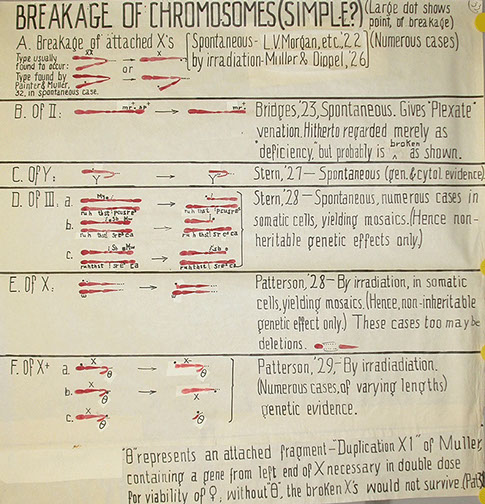 BREAKAGE OF CHROMOSOMES (SIMPLE?) (Large dot shows
point of breakage)
A. Breakage of attached X's [Spontaneous- L.V.Morgan, etc.'22 (Numerous cases)
by irradiation-Muller & Dippel, '26
Type usually
found to occur:
XX
or
Type found by
Painter & Muller,
'32, in spontaneous case.
B. Of II:
Bridges,'23, Spontaneous. Gives "Plexate"
venation. Hitherto regarded merely as
"deficiency," but probably is broken as shown.
C. Of Y:
Y
Y
Stern,'27 – Spontaneous (gen. & cytol. evidence)
D. Of III, a.
b.
c.
Stern,'28 – Spontaneous, numerous cases in
somatic cells, yielding mosaics. (Hence non-
heritable genetic effects only.)
E. Of X:
Patterson,'28 – By irradiation, in somatic
cells, yielding mosaics. (Hence, non-inheritable
genetic effect only.) These cases too may be
deletions.
F. Of X+ a. X θ X- θ
b. X θ X θ
c. X θ θ
Patterson,'29,– By irradiadiation.
(Numerous cases, of varying lengths)
genetic evidence.
"θ" represents an attached fragment – "Duplication X1" of Muller,
containing a gene from left end of X necessary in double dose
for viability of ♀; without "θ", the broken X's would not survive.